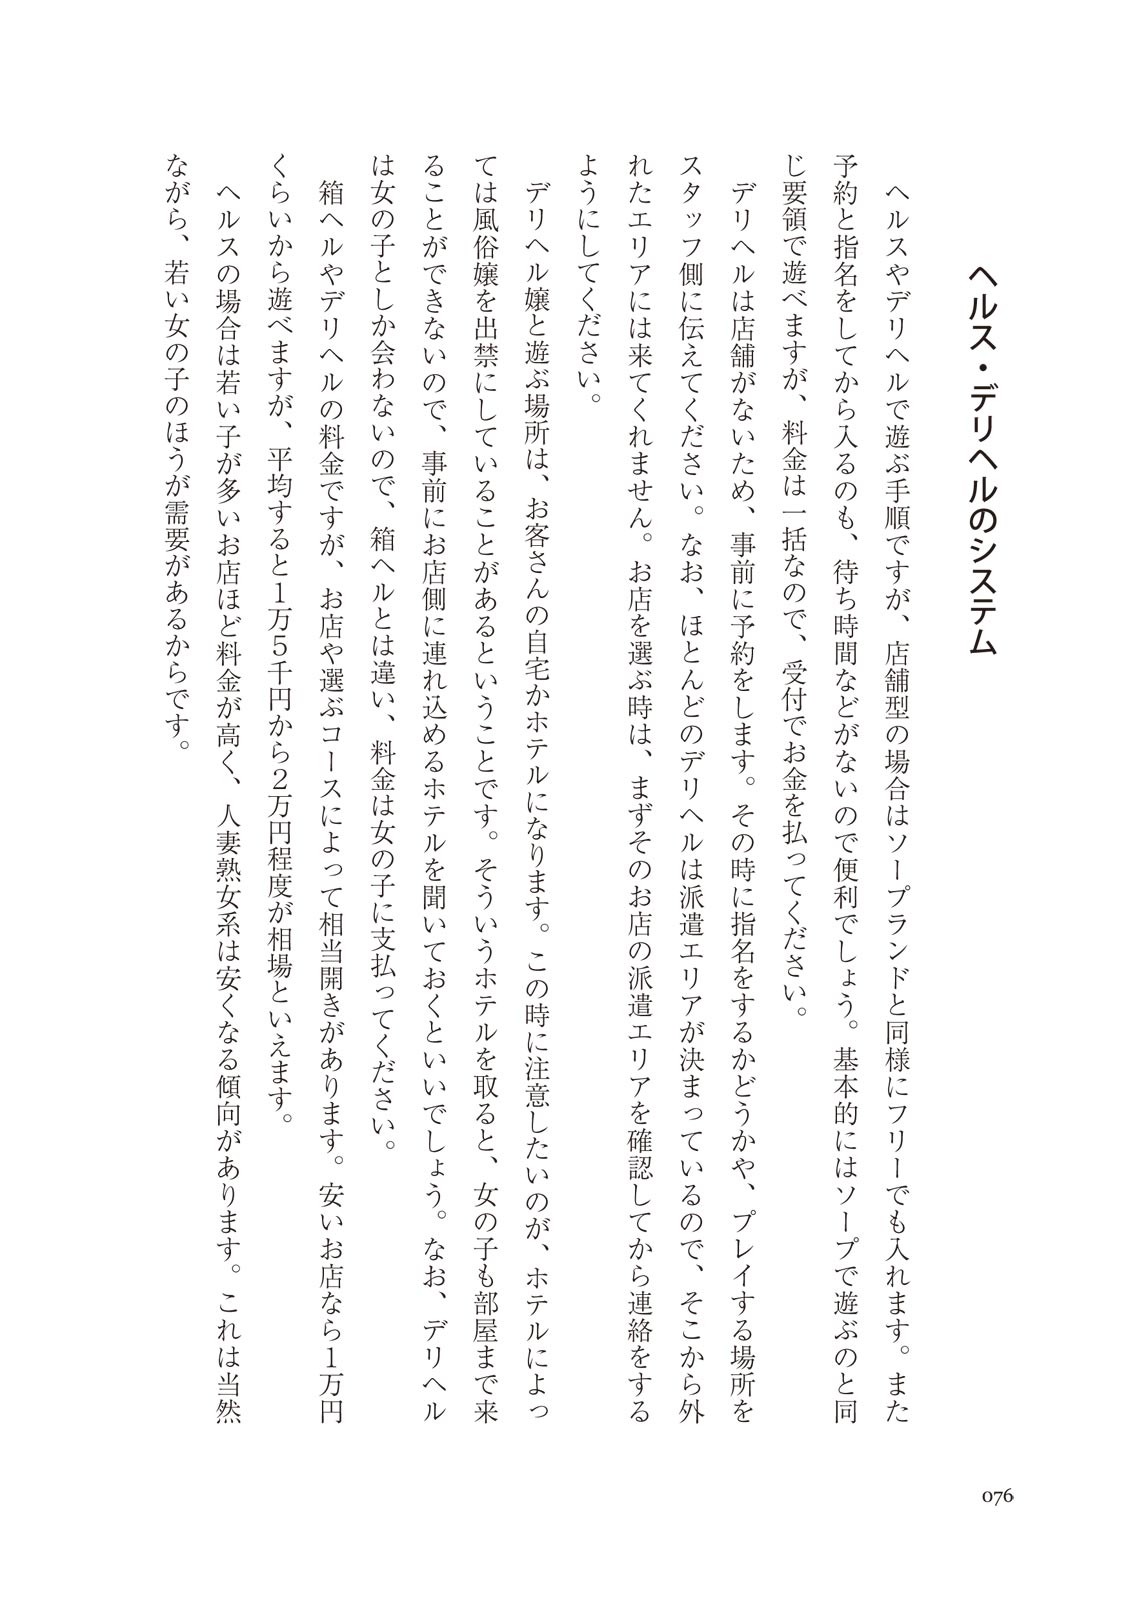 ヘルス・デリヘルのシステム
　ヘルスやデリヘルで遊ぶ手順ですが、店舗型の場合はソープランドと同様にフリーでも入れます。また
予約と指名をしてから入るのも、待ち時間などがないので便利でしょう。基本的にはソープで遊ぶのと同
じ要領で遊べますが、料金は一括なので、受付でお金を払ってください。
　デリヘルは店舗がないため、事前に予約をします。その時に指名をするかどうかや、プレイする場所を
スタッフ側に伝えてください。なお、ほとんどのデリヘルは派遣エリアが決まっているので、そこから外
れたエリアには来てくれません。お店を選ぶ時は、まずそのお店の派遣エリアを確認してから連絡をする
ようにしてください。
　デリヘル嬢と遊ぶ場所は、お客さんの自宅かホテルになります。この時に注意したいのが、ホテルによっ
ては風俗嬢を出禁にしていることがあるということです。そういうホテルを取ると、女の子も部屋まで来
ることができないので、事前にお店側に連れ込めるホテルを聞いておくといいでしょう。なお、デリヘル
は女の子としか会わないので、箱ヘルとは違い、料金は女の子に支払ってください。
　箱ヘルやデリヘルの料金ですが、お店や選ぶコースによって相当開きがあります。安いお店なら１万円
くらいから遊べますが、平均すると１万５千円から２万円程度が相場といえます。
　ヘルスの場合は若い子が多いお店ほど料金が高く、人妻熟女系は安くなる傾向があります。これは当然
ながら、若い女の子のほうが需要があるからです。
076